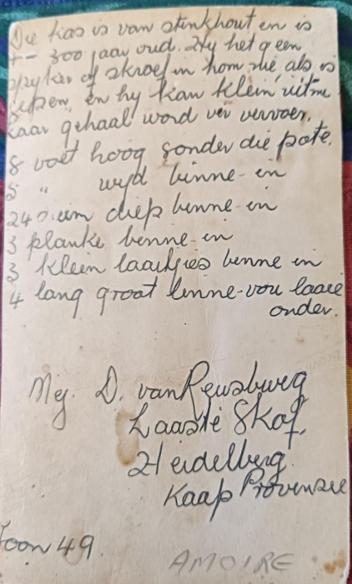 Die kas is van stinkhout en is
+- 300 jaar oud. Hy het geen
spyker of skroef in hom nie, als is
en hy kan klein uitme-
kaar gehaal word vir vervoer.
8 voet hoog sonder die pote.
5 " wyd binne-in
24 duim diep binne-in
3 planke benne-in
3 klein laaitjies benne in
4 lang groot linne-vou laaie
onder.
Mej. D. van Rensburg
Laaste Skof,
Heidelberg
Kaap Provinsie
Foon 49.
AMOIRE